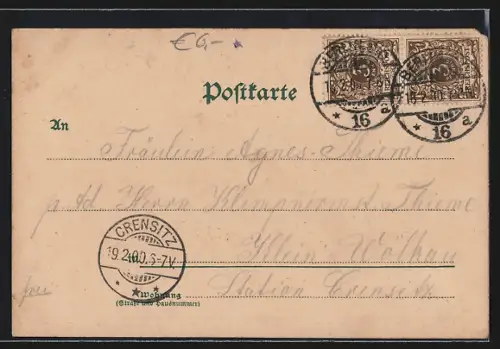 €6,-
Postkarte
16 a
16 a
An
Fräulein Agnes Thieme
p. ad. Herrn Thieme
CRENSITZ
19.2.00.6-7V.
Klein Wölkau
Wohnung
(Straße und Hausnummer)
Station Crensitz
frei